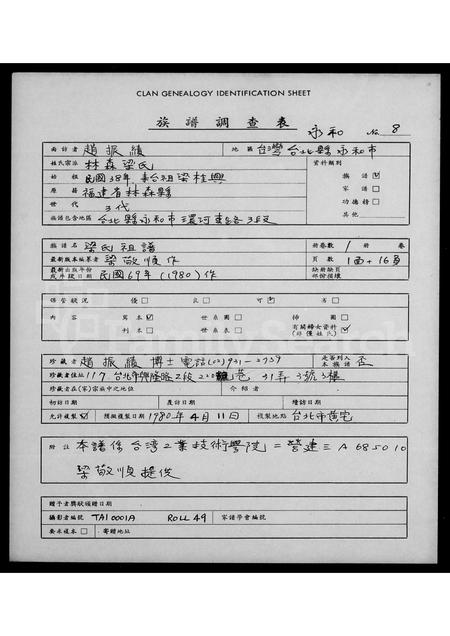 CLAN GENEALOGY IDENTIFICATION SHEET
族譜調查表 永和 № 8
面訪者 趙振績 地區 台灣台北縣永和市
姓氏宗派 林森梁氏 資料類別
始祖 民國38年遷台祖梁桂興 族譜 ☑
原籍 福建省林森縣 家譜 □
世代 3代 功德榜 □
族譜包含地區 台北縣永和市環河東路3段 其他
譜名 梁氏祖譜 冊卷數 1 冊 卷
最新版本編纂者 梁敬順作 頁數 1面+16頁
最新出版年份或年限日期 民國69年(1980)作 缺冊缺頁部份損壞
保管狀況 優 □ 良 □ 可 劣 □
內容 寫本 ☑ 世系圖 □ 傳圖 □
刊本 □ 世系表 □ 有關婦女資料 (非僅姓氏) ☑
珍藏者 趙振績博士電話(02)931-2739 是否列入本族譜 否
珍藏者住址 117 台北市興隆路2段220巷31弄3號3樓
珍藏者在(家)宗族中之地位 介紹者
初訪日期 複訪日期 續訪日期
允許複製 ☑ 預擬複製日期 1980年4月11日 複製地點 台北市黃宅
附註 本譜係台灣工業技術學院二營建三A685010
梁敬順提供
贈予者獎狀頒贈日期
攝影者編號 TA10001A ROLL 49 家譜學會編號
要求複本 □ 寄贈地址
FamilySearch